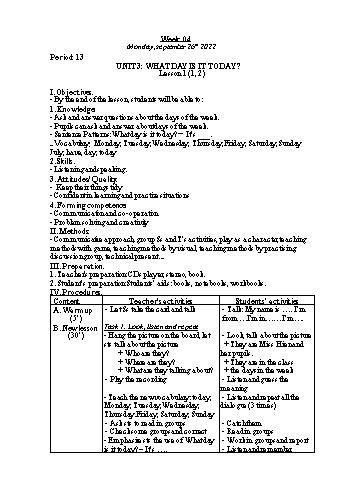 Week: 04
Monday, september 26th 2022
Period: 13
UNIT 3: WHAT DAY IS IT TODAY?
Lesson 1 (1, 2)
I. Objectives.
- By the end of the lesson, students will be able to:
1. Knowledge:
- Ask and answer questions about the days of the week.
- Pupils can ask and answer about days of the week.
- Sentence Patterns: What day is it today? – It's …….
- Vocabulary: Monday; Tuesday; Wednesday; Thursday; Friday; Saturday; Sunday
July; have, day; today
2. Skills.
- Listening and speaking.
3. Attitudes/ Quality.
- Keep their things tidy
- Confident in learning and practice situations
4. Forming competence
- Communication and co-operation
- Problem solving and creativity
II. Methods:
- Communicative approach, group Ss and T's activities, play as a character, teaching
methods with game, teaching methods by visual, teaching methods by practising,
discussion group, technical present…
III. Preparation.
1. Teacher's preparation: CDs player, stereo, book.
2. Student's preparation: Students' aids: books, notebooks, workbooks.
IV. Procedures.
Content Teacher's activities Students' activities
A. Warm up
(5')
- Let Ss take the card and talk
- Talk: My name is ….. I'm
from…I'm in……I'm….
B. New lesson
(30')
Task 1. Look, listen and repeat
- Hang the picture on the board, let
ss talk about the picture
+ Who are they?
+ Where are they?
+ What are they talking about?
- Play the recording
- Teach the new vocabulary: today;
Monday; Tuesday; Wednesday;
Thursday; Friday; Saturday; Sunday
- Ask ss to read in groups
- Check some groups and correct
- Emphasis ss the use of: What day
is it today? – It's …..
- Look, talk about the picture
+ They are Miss Hien and
her pupils.
+ They are in the class
+ the days in the week
- Listen and guess the
meaning
- Listen and repeat all the
dialogue (3 times)
- Catch them
- Read in groups
- Work in groups and report
- Listen and remember